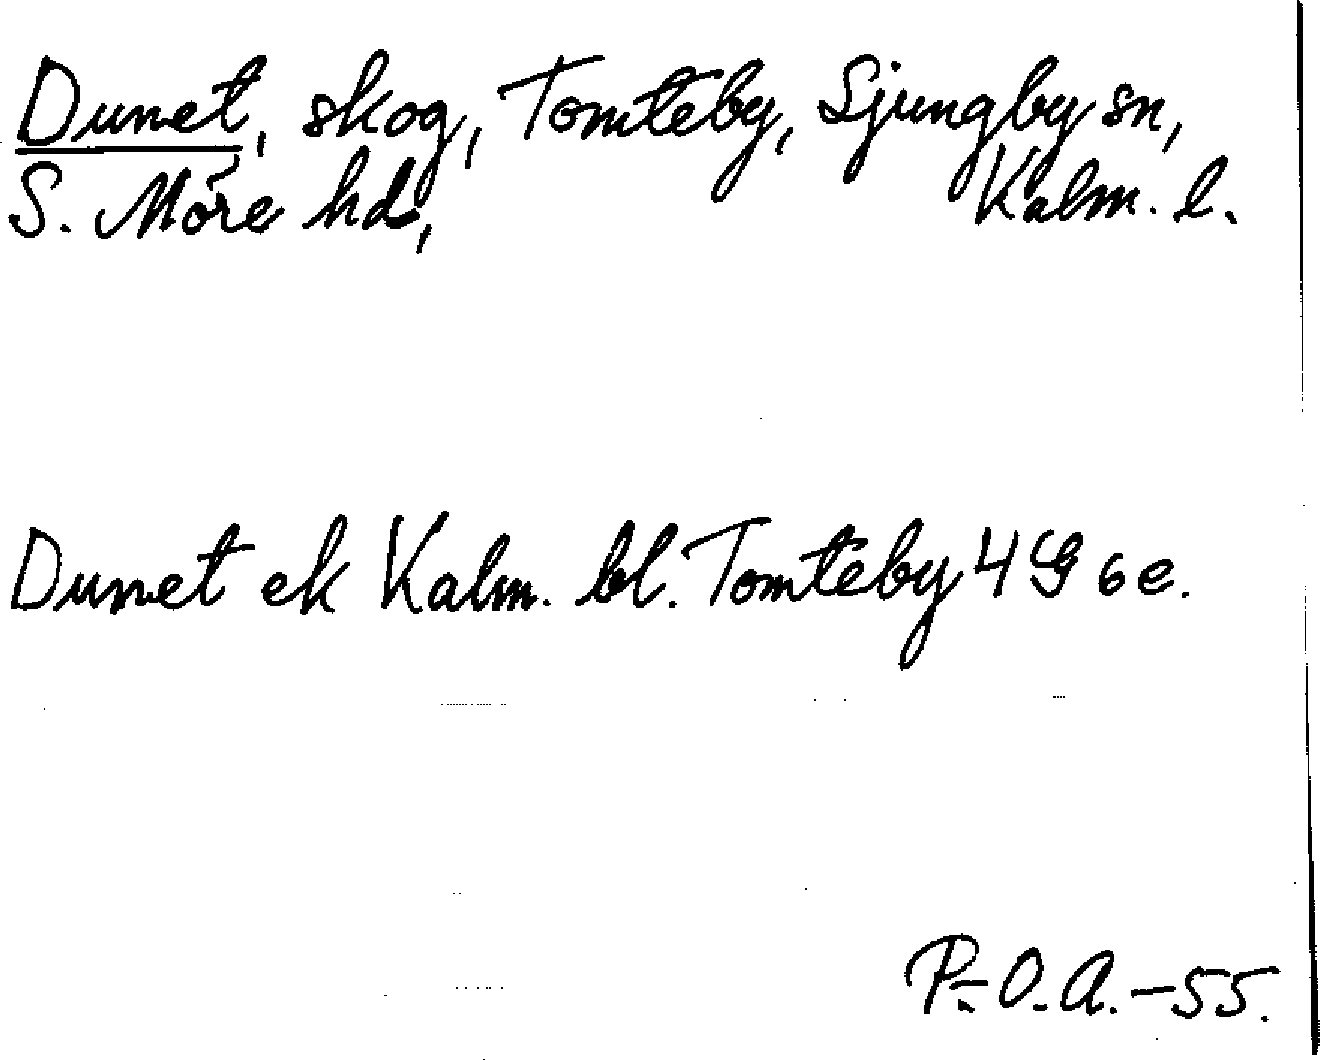 Dunet, skog, Tomteby, Ljungby sn,
S. Möre hd, Kalm. l.
Dunet ek Kalm. bl. Tomteby 4 G 6 e.
P.-O. A. -55.